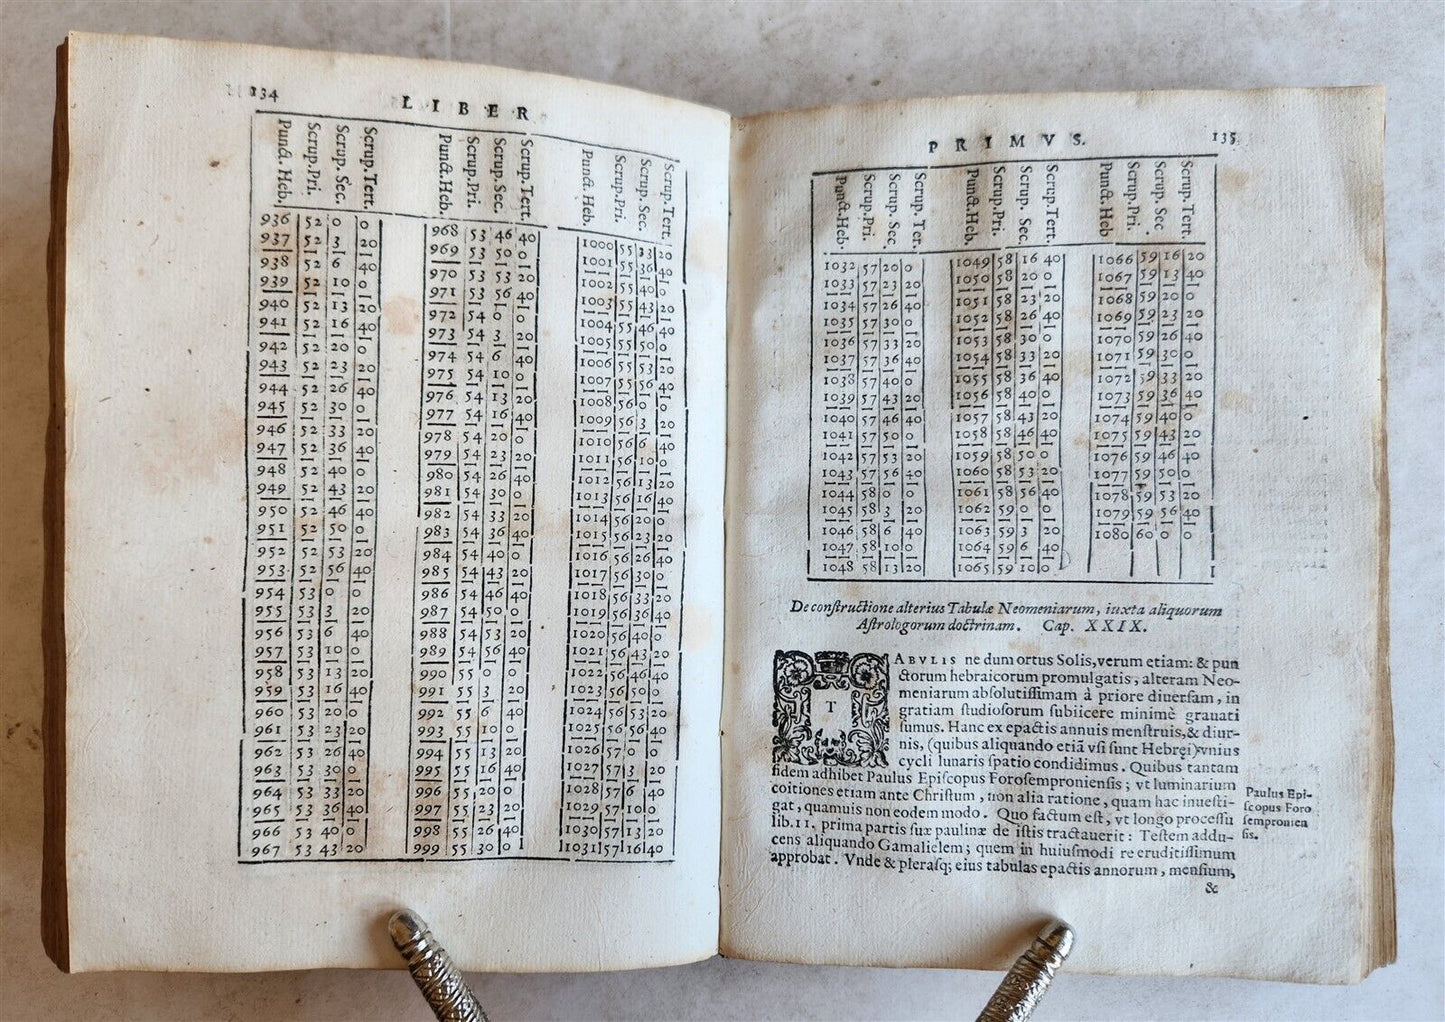 134 LIBER
Punct. Heb. Scrup. Pri. Scrup. Sec. Scrup. Tert. Punct. Heb. Scrup. Pri. Scrup. Sec. Scrup. Tert. Punct. Heb. Scrup. Pri. Scrup. Sec. Scrup. Tert.
936 52 0 0 968 53 46 40 1000 55 33 20
937 52 3 20 969 53 50 0 1001 55 36 40
938 52 6 40 970 53 53 20 1002 55 40 0
939 52 10 0 971 53 56 40 1003 55 43 20
940 52 13 20 972 54 0 0 1004 55 46 40
941 52 16 40 973 54 3 20 1005 55 50 0
942 52 20 0 974 54 6 40 1006 55 53 20
943 52 23 20 975 54 10 0 1007 55 56 40
944 52 26 40 976 54 13 20 1008 56 0 0
945 52 30 0 977 54 16 40 1009 56 3 20
946 52 33 20 978 54 20 0 1010 56 6 40
947 52 36 40 979 54 23 20 1011 56 10 0
948 52 40 0 980 54 26 40 1012 56 13 20
949 52 43 20 981 54 30 0 1013 56 16 40
950 52 46 40 982 54 33 20 1014 56 20 0
951 52 50 0 983 54 36 40 1015 56 23 20
952 52 53 20 984 54 40 0 1016 56 26 40
953 52 56 40 985 54 43 20 1017 56 30 0
954 53 0 0 986 54 46 40 1018 56 33 20
955 53 3 20 987 54 50 0 1019 56 36 40
956 53 6 40 988 54 53 20 1020 56 40 0
957 53 10 0 989 54 56 40 1021 56 43 20
958 53 13 20 990 55 0 0 1022 56 46 40
959 53 16 40 991 55 3 20 1023 56 50 0
960 53 20 0 992 55 6 40 1024 56 53 20
961 53 23 20 993 55 10 0 1025 56 56 40
962 53 26 40 994 55 13 20 1026 57 0 0
963 53 30 0 995 55 16 40 1027 57 3 20
964 53 33 20 996 55 20 0 1028 57 6 40
965 53 36 40 997 55 23 20 1029 57 10 0
966 53 40 0 998 55 26 40 1030 57 13 20
967 53 43 20 999 55 30 0 1031 57 16 40
PRIMVS. 135
Punct. Heb. Scrup. Pri. Scrup. Sec. Scrup. Ter. Punct. Heb. Scrup. Pri. Scrup. Sec. Scrup. Tert. Punct. Heb Scrup. Pri. Scrup. Sec Scrup. Tert.
1032 57 20 0 1049 58 16 40 1066 59 16 20
1033 57 23 20 1050 58 20 0 1067 59 13 40
1034 57 26 40 1051 58 23 20 1068 59 20 0
1035 57 30 0 1052 58 26 40 1069 59 23 20
1036 57 33 20 1053 58 30 0 1070 59 26 40
1037 57 36 40 1054 58 33 20 1071 59 30 0
1038 57 40 0 1055 58 36 40 1072 59 33 20
1039 57 43 20 1056 58 40 0 1073 59 36 40
1040 57 46 40 1057 58 43 20 1074 59 40 0
1041 57 50 0 1058 58 46 40 1075 59 43 20
1042 57 53 20 1059 58 50 0 1076 59 46 40
1043 57 56 40 1060 58 53 20 1077 59 50 0
1044 58 0 0 1061 58 56 40 1078 59 53 20
1045 58 3 20 1062 59 0 0 1079 59 56 40
1046 58 6 40 1063 59 3 20 1080 60 0 0
1047 58 10 0 1064 59 6 40
1048 58 13 20 1065 59 10 0
De constructione alterius Tabulæ Neomeniarum, iuxta aliquorum
Astrologorum doctrinam. Cap. XXIX.
TABVLIS ne dum ortus Solis, verum etiam: & pun
ctorum hebraicorum promulgatis, alteram Neo-
meniarum absolutissimam à priore diuersam, in
gratiam studiosorum subiicere minimè grauati
sumus. Hanc ex epactis annuis menstruis, & diur-
nis, (quibus aliquando etiã vsi sunt Hebręi) vnius
cycli lunaris spatio condidimus. Quibus tantam
fidem adhibet Paulus Episcopus Forosemproniensis; vt luminarium
coitiones etiam ante Christum, non alia ratione, quam hac inuesti-
gat, quamuis non eodem modo. Quo factum est, vt longo processu
lib. 11, prima partis suæ paulinæ de istis tractauerit: Testem addu-
cens aliquando Gamalielem; quem in huiusmodi re eruditissimum
approbat. Vnde & plerasq; eius tabulas epactis annorum, mensium,
&
Paulus Epi-
scopus Foro
sempronien
sis.